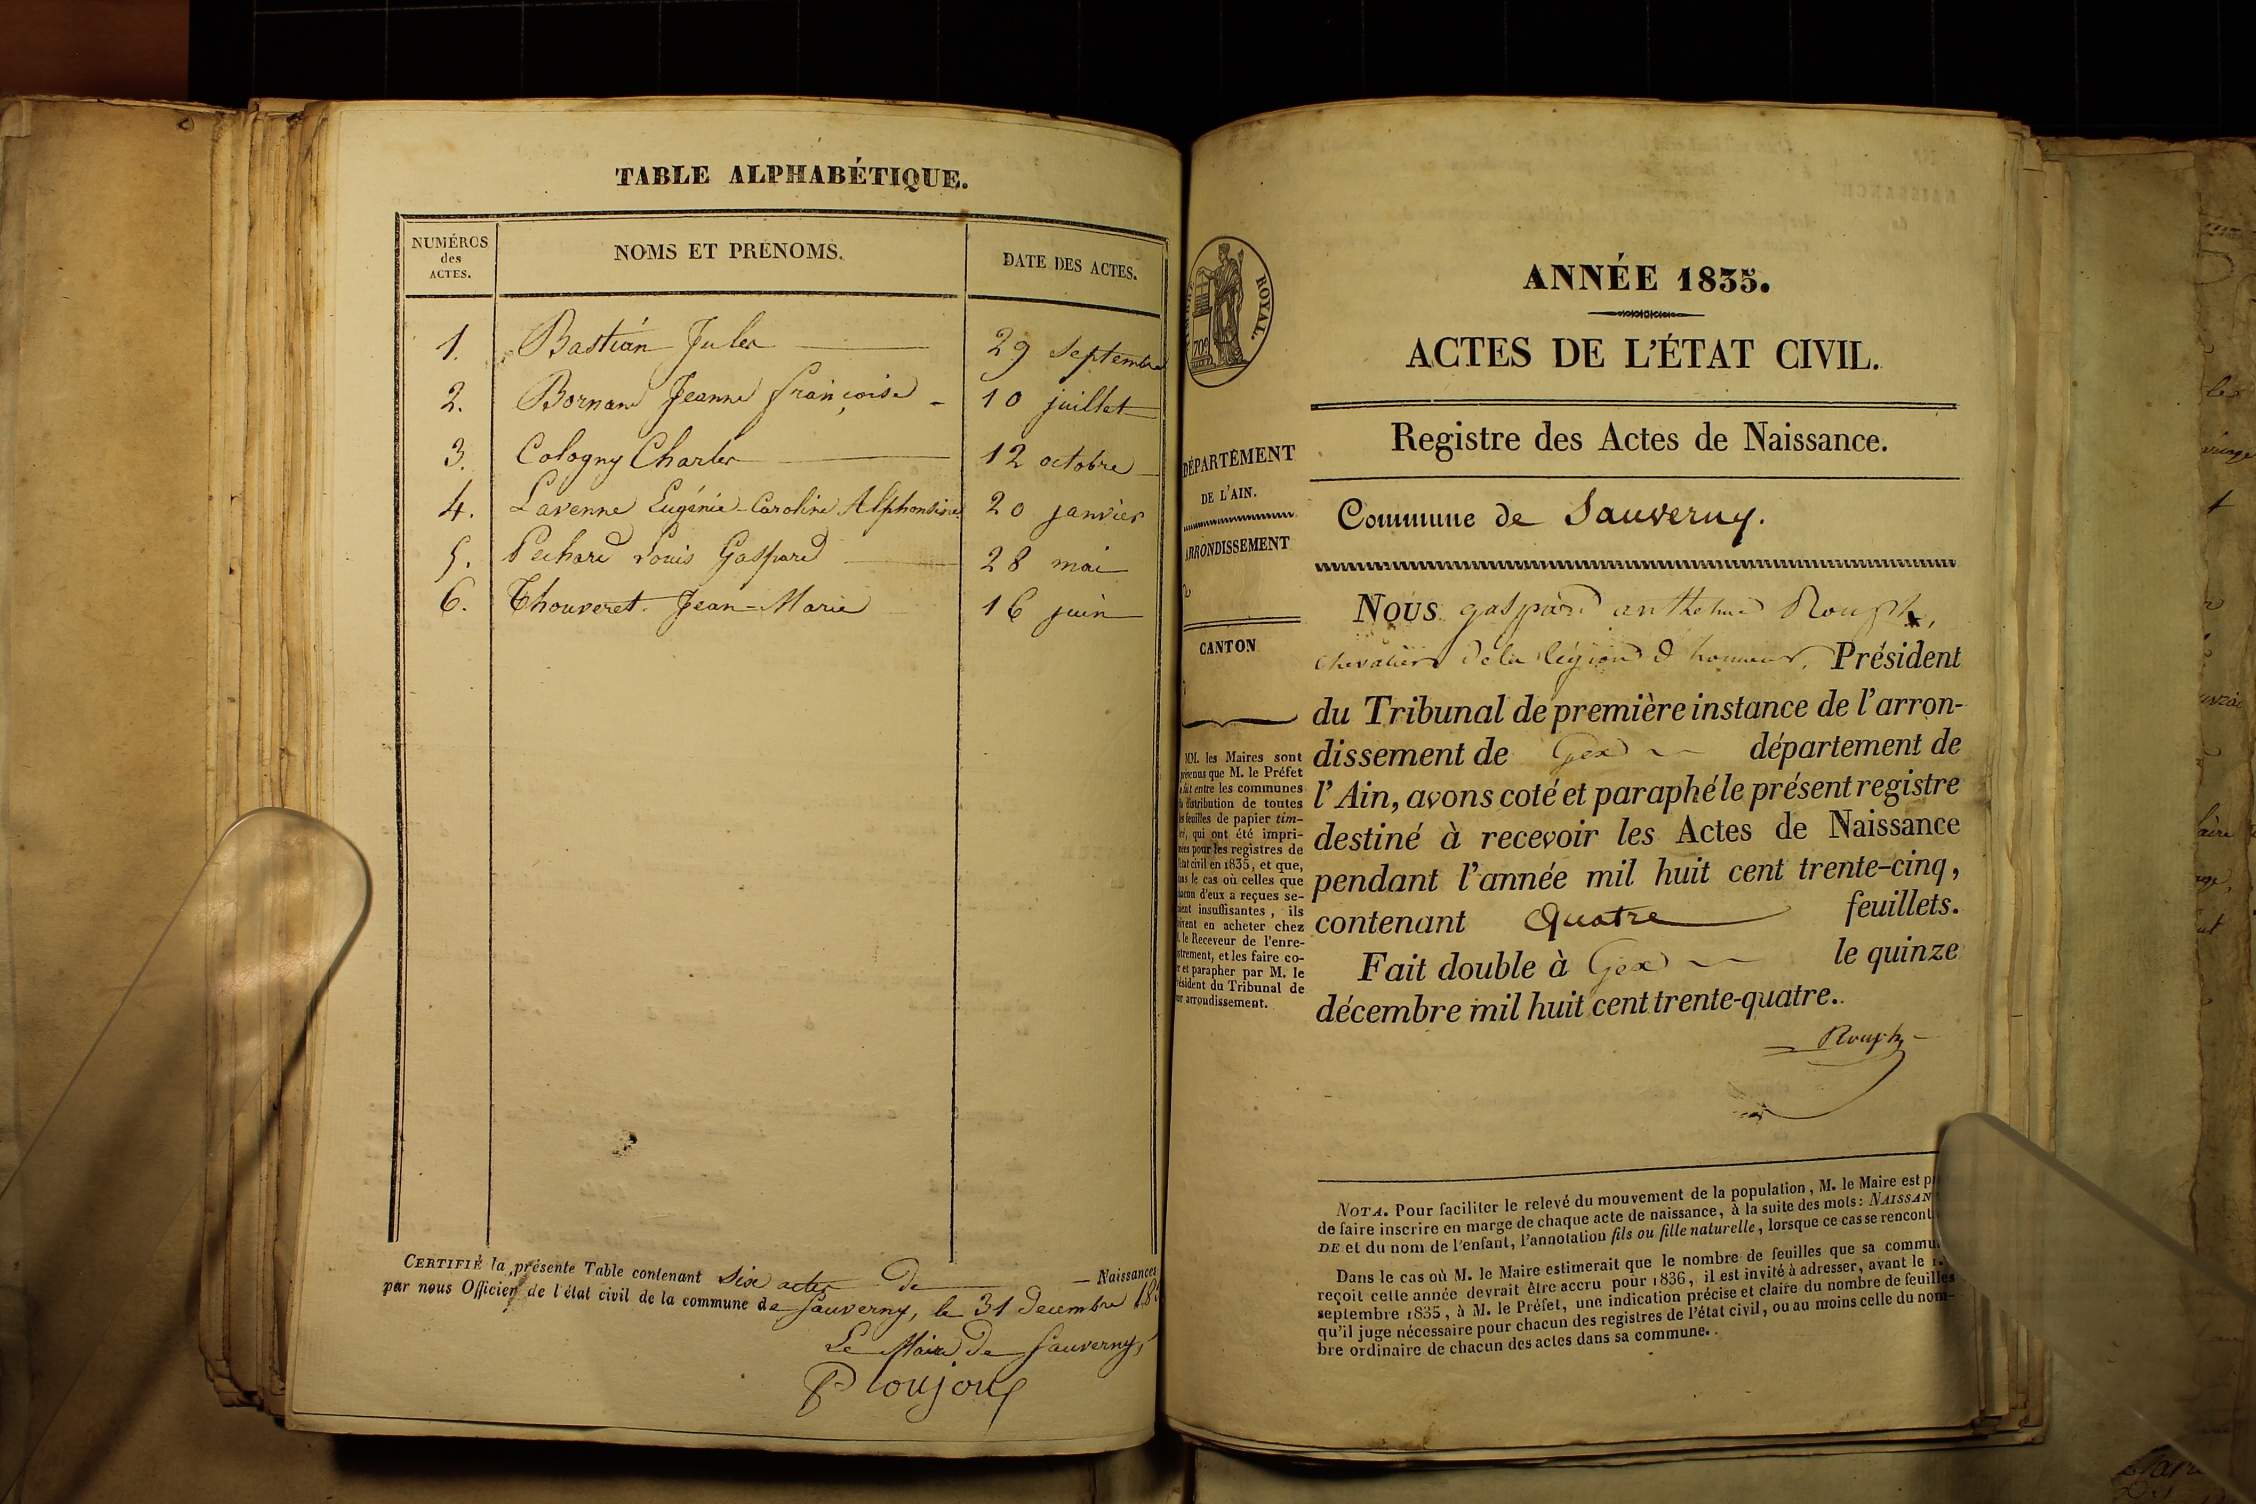 TABLE ALPHABÉTIQUE.
NUMÉROS des ACTES.
NOMS ET PRÉNOMS.
DATE DES ACTES.
1. Bastian Jules 29 septembre
2. Bornand Jeanne françoise 10 juillet
3. Cologny Charles 12 octobre
4. Lavenne Eugénie-Caroline Alphonsine 20 janvier
5. Pechard Louis Gaspard 28 mai
6. Thouveret Jean-Marie 16 juin
CERTIFIÉ la présente Table contenant six actes de Naissances
par nous Officier de l'état civil de la commune de Sauverny, le 31 Decembre
Le Maire de Sauverny,
TIMBRE ROYAL
70c
DÉPARTEMENT
DE L'AIN.
ARRONDISSEMENT
CANTON
MM. les Maires sont
prévenus que M. le Préfet
a fait entre les communes
la distribution de toutes
les feuilles de papier tim-
bré, qui ont été impri-
mées pour les registres de
l'état civil en 1835, et que,
dans le cas où celles que
chacun d'eux a reçues se-
raient insuffisantes, ils
doivent en acheter chez
M. le Receveur de l'enre-
gistrement, et les faire co-
ter et parapher par M. le
Président du Tribunal de
leur arrondissement.
ANNÉE 1835.
ACTES DE L'ÉTAT CIVIL.
Registre des Actes de Naissance.
Commune de Sauverny.
NOUS gaspard anthelme Rouph,
chevalier de la légion d'honneur, Président
du Tribunal de première instance de l'arron-
dissement de Gex département de
l'Ain, avons coté et paraphé le présent registre
destiné à recevoir les Actes de Naissance
pendant l'année mil huit cent trente-cinq,
contenant Quatre feuillets.
Fait double à Gex le quinze
décembre mil huit cent trente-quatre.
Rouph
NOTA. Pour faciliter le relevé du mouvement de la population, M. le Maire est
de faire inscrire en marge de chaque acte de naissance, à la suite des mots: NAISSAN
DE et du nom de l'enfant, l'annotation fils ou fille naturelle, lorsque ce cas se rencont
Dans le cas où M. le Maire estimerait que le nombre de feuilles que sa commu
reçoit cette année devrait être accru pour 1836, il est invité à adresser, avant le 1.
septembre 1835, à M. le Préfet, une indication précise et claire du nombre de feuilles
qu'il juge nécessaire pour chacun des registres de l'état civil, ou au moins celle du nom-
bre ordinaire de chacun des actes dans sa commune.